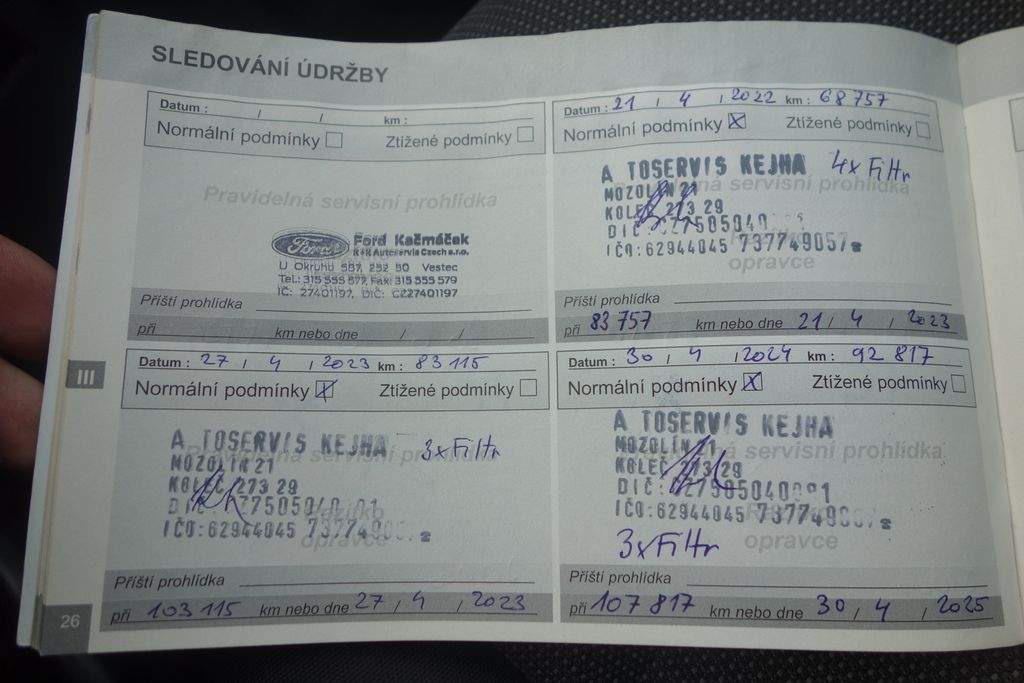 SLEDOVÁNÍ ÚDRŽBY
Datum : / / km :
Normální podmínky Ztížené podmínky
Pravidelná servisní prohlídka
Ford Ford Kačmáček
K+K Autoservis Czech s.r.o.
U Okruhu 587, 252 50 Vestec
Tel.: 315 555 577, Fax: 315 555 579
IČ: 27401197, DIČ: CZ27401197
Příští prohlídka
při km nebo dne / /
Datum : 21 / 4 / 2022 km : 68 757
Normální podmínky X Ztížené podmínky
A TOSERVIS KEJHA 4x Filtr
MOZOLÍN 21 servisní prohlídka
KOLEČ 273 29
DIČ: CZ7505040
IČO:62944045 737749057
opravce
Příští prohlídka
při 83 757 km nebo dne 21 / 4 / 2023
Datum : 27 / 4 / 2023 km : 83 115
Normální podmínky X Ztížené podmínky
A TOSERVIS KEJHA 3x Filtr
Pravidelná servisní prohlídka
MOZOLÍN 21
KOLEČ 273 29
Razítko
IČO:62944045
opravce
Příští prohlídka
při 103 115 km nebo dne 27 / 4 / 2023
III
Datum : 30 / 4 / 2024 km : 92 817
Normální podmínky X Ztížené podmínky
A TOSERVIS KEJHA
MOZOLÍN 21 servisní prohlídka
KOLEČ 273 29
DIČ:
IČO:62944045
opravce
3x Filtr
Příští prohlídka
při 107 817 km nebo dne 30 / 4 / 2025
26